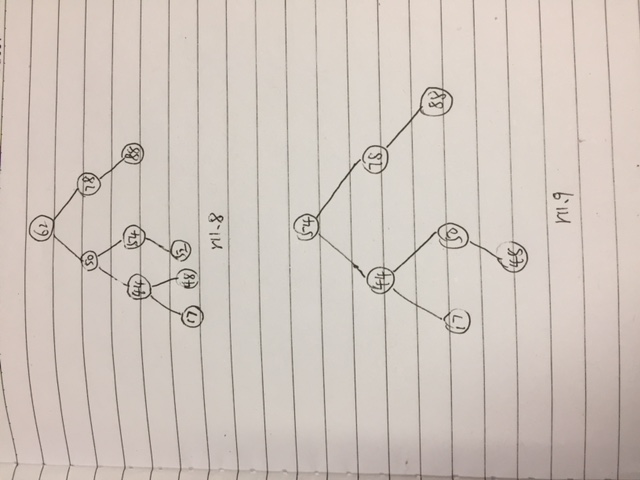 62
50 78
44 54 88
17 48 52
r11.8
54
44 78
17 50 88
48
r11.9